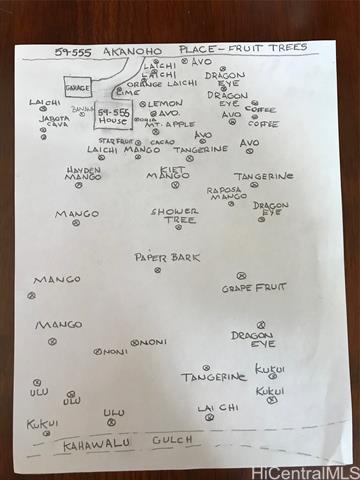 59-555 AKANOHO PLACE-FRUIT TREES
LAICHI AVO
LAICHI DRAGON EYE
GARAGE ORANGE LAICHI
LIME DRAGON EYE
LAICHI LEMON COFFEE
59-555 HOUSE AVO.
JABOTA CAVA AVO COFFEE
MT. APPLE
STARFRUIT CACAO AVO AVO
LAICHI MANGO TANGERINE
HAYDEN MANGO KIET MANGO TANGERINE
RAPOSA MANGO
MANGO SHOWER TREE DRAGON EYE
PAPER BARK
MANGO GRAPE FRUIT
MANGO DRAGON EYE
NONI NONI
TANGERINE KUKUI
ULU ULU KUKUI
KUKUI ULU LAI CHI
KAHAWALU GULCH
HiCentralMLS